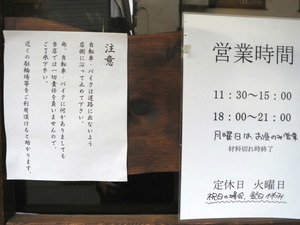 注意
自転車・バイクは道路に出ないよう
店側に沿って止めて下さい。
尚、自転車・バイクに何かありましても
当店では一切責任を負いませんので、
ご了承下さい。
近くの駐輪場等をご利用頂けると助かります。
営業時間
11：30～15：00
18：00～21：00
月曜日は、お昼のみ営業
材料切れ終了
定休日　火曜日
祝日の場合、翌日休み